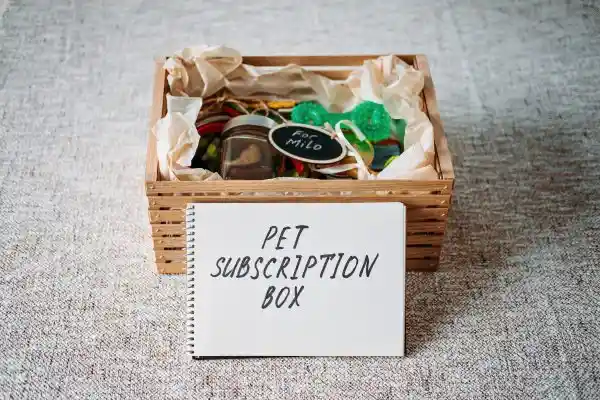 For
Milo
PET
SUBSCRIPTION
BOX